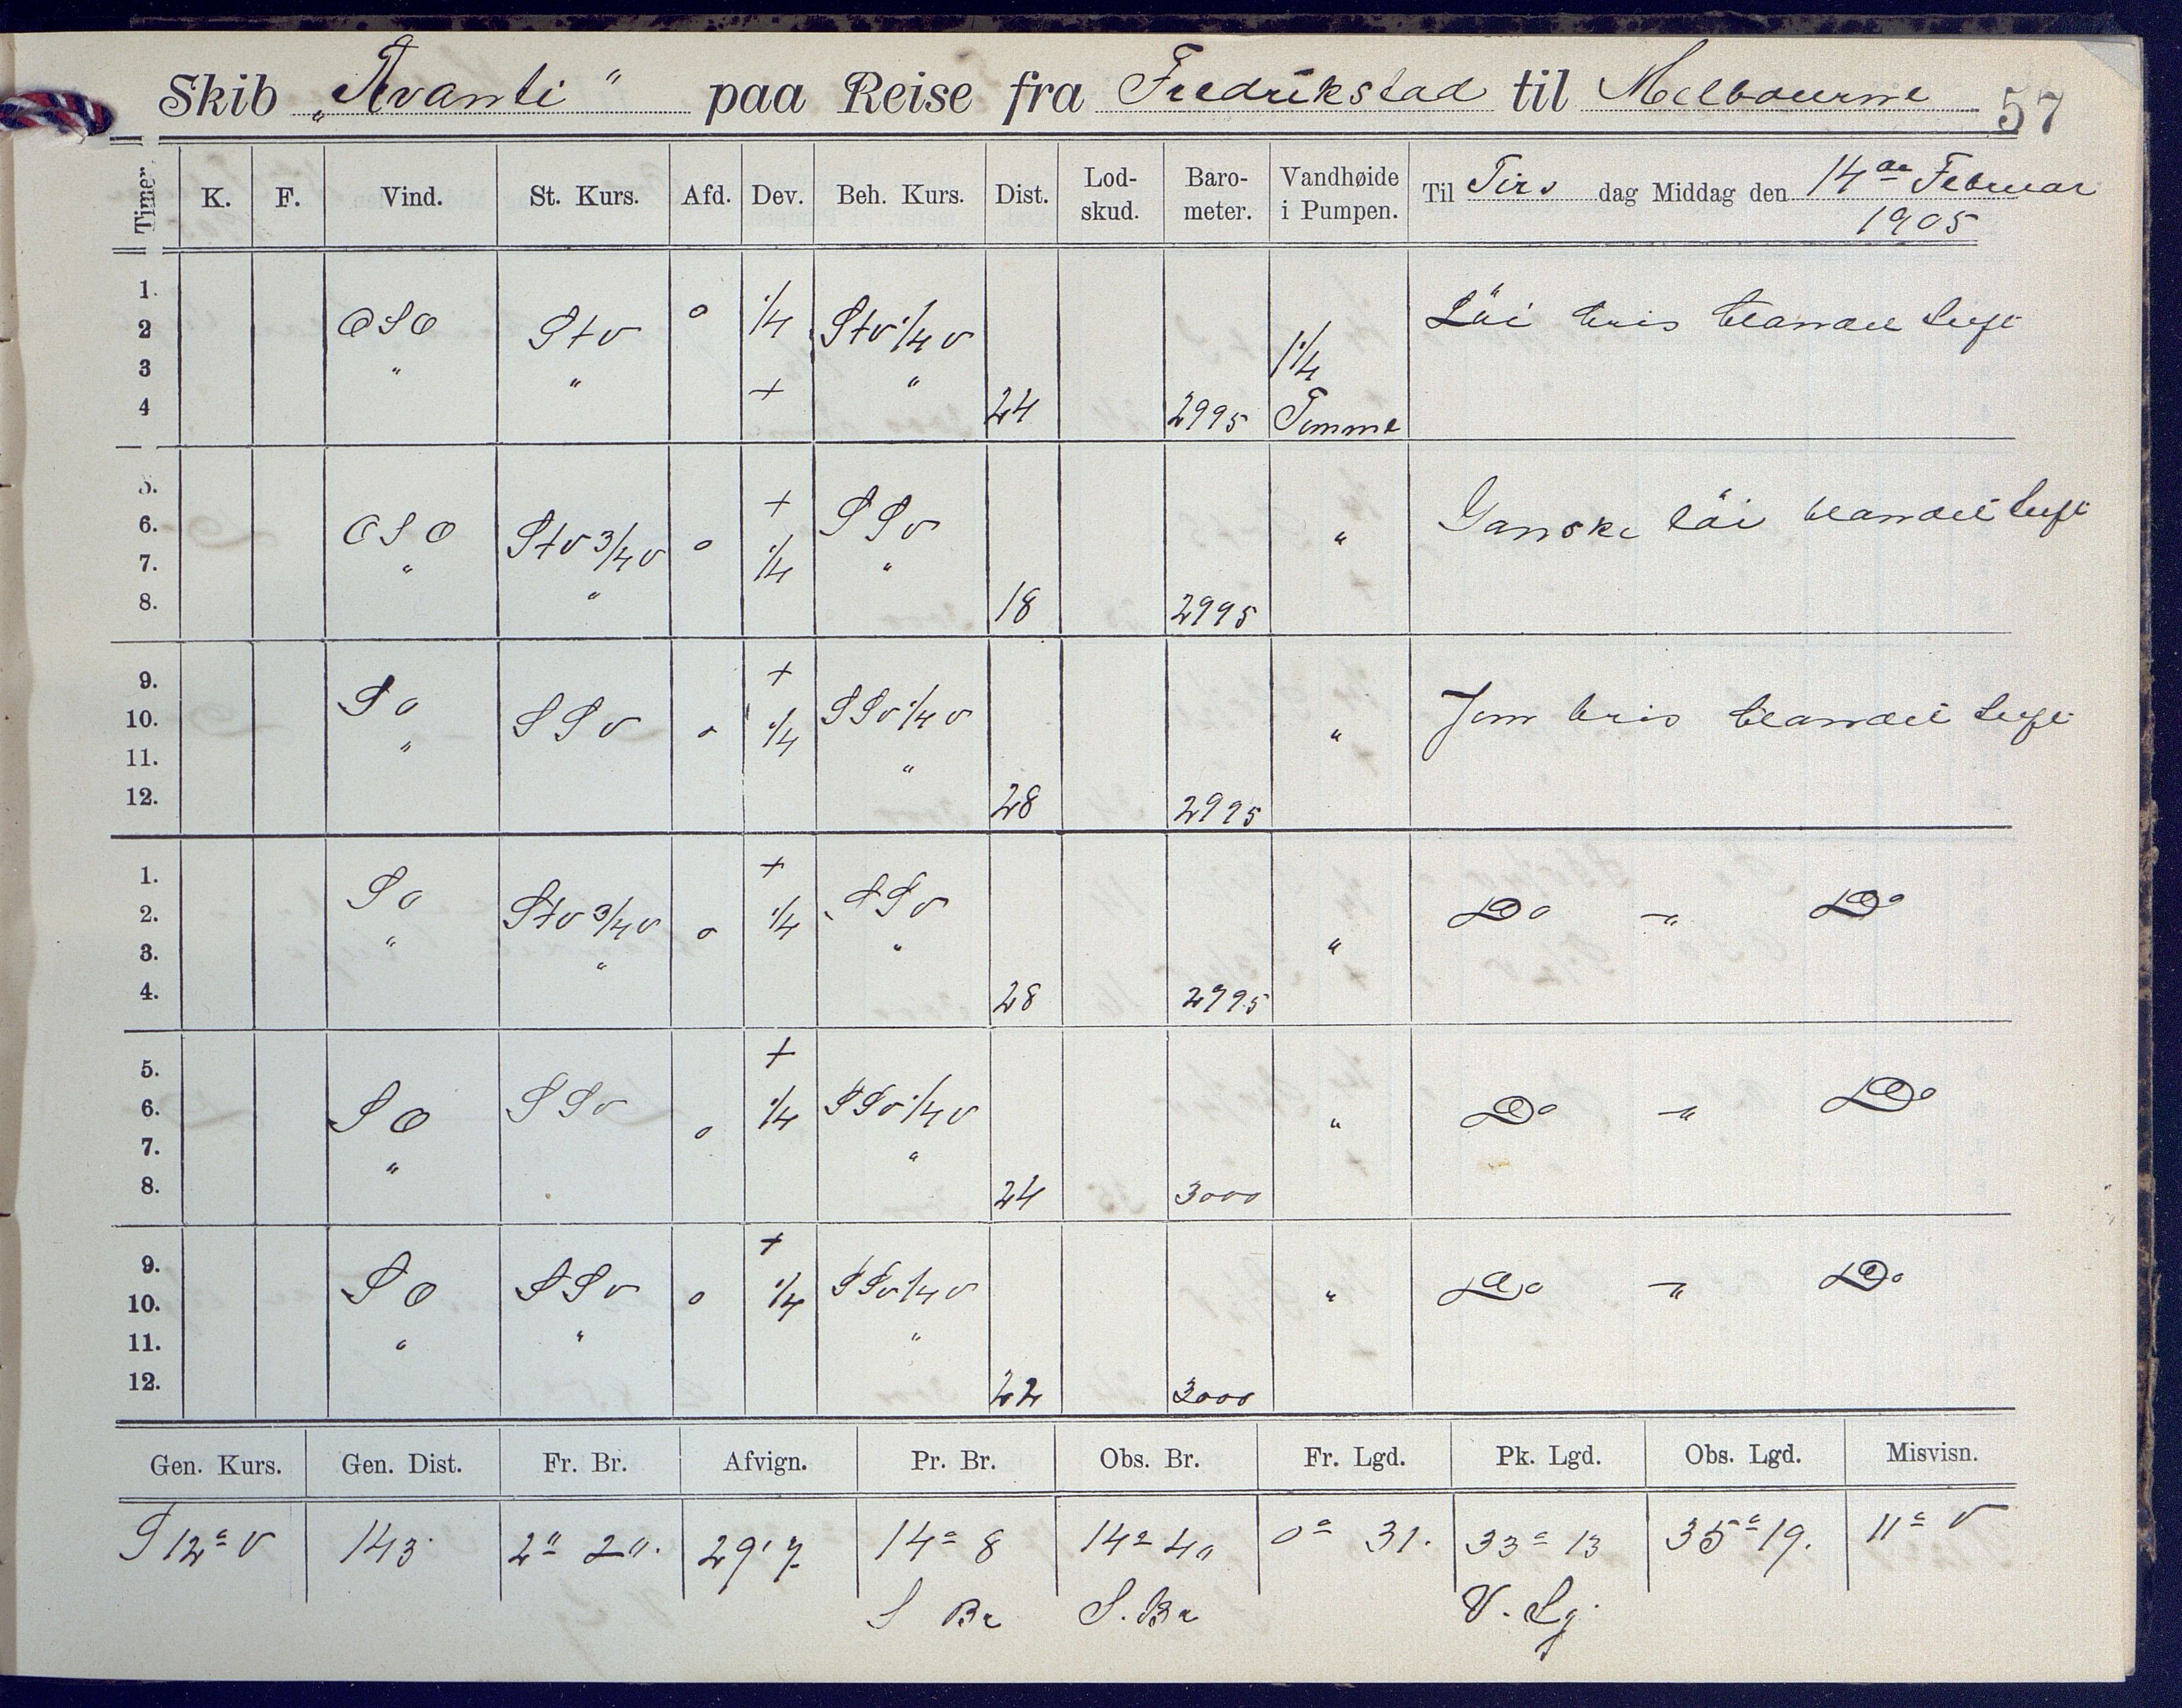 Skib „Avanti“ paa Reise fra Fredrikstad til Melbourne 57
Timer. K. F. Vind. St. Kurs. Afd. Dev. Beh. Kurs. Dist. Lod-skud. Baro-meter. Vandhøide i Pumpen. Til Tirs dag Middag den 14de Februar
1905
1.
2 OSO StV 0 1/4 StV 1/4 V Löi bris blandet luft
3 " " + " 1 1/4
4 24 2995 Tomme
5. +
6. OSO StV 3/4 V 0 1/4 SSV " Ganske löi blandet luft
7. " " "
8. 18 2995
9. +
10. SO SSV 0 1/4 SSV 1/4 V " Jevn bris blandet luft
11. " "
12. 28 2995
1. +
2. SO StV 3/4 V 0 1/4 SSV " Do - " Do
3. " " "
4. 28 2995
5. +
6. SO SSV 0 1/4 SSV 1/4 V " Do - " Do
7. " "
8. 24 3000
9. +
10. SO SSV 0 1/4 SSV 1/4 V " Do - " Do
11. " " "
12. 22 3000
Gen. Kurs. Gen. Dist. Fr. Br. Afvign. Pr. Br. Obs. Br. Fr. Lgd. Pk. Lgd. Obs. Lgd. Misvisn.
S 12° V 143 2° 20. 29'7 14° 8 14° 4 0° 31. 33° 13 35° 19. 11° V
S Br S. Br V. Lg.